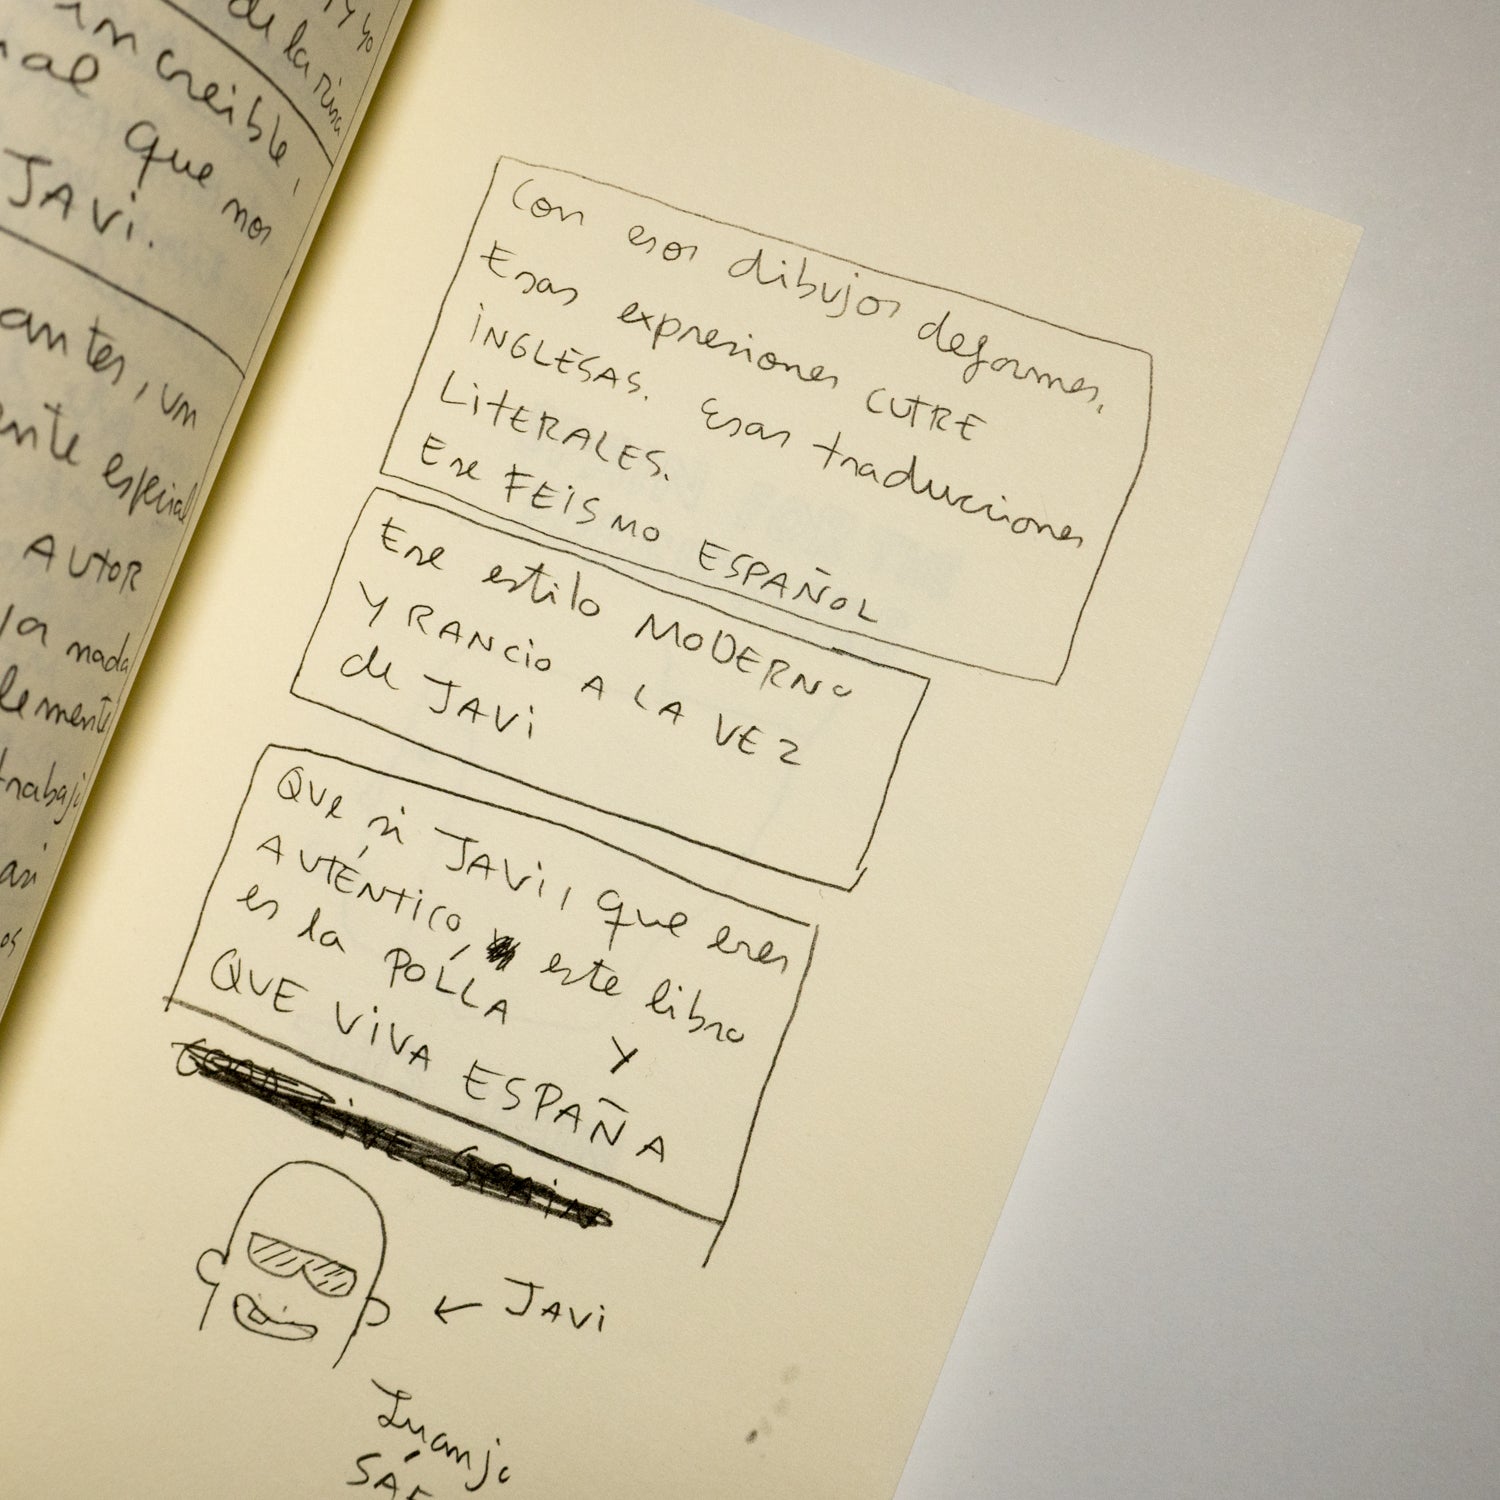 y yo
de la risa
increible,
que nos
JAVi.
antes, un
ente especial
AUTOR
nada
lemente
trabaj
Con esos dibujos deformes.
Esas expresiones CUTRE
iNGLESAS. Esas traducciones
LiTERALES.
Ese FEiSMO ESPAÑOL
Ese estilo MODERNO
Y RANCiO A LA VEZ
de JAVi
QUE si JAVi, que eres
AUTÉNTiCO, este libro
es la POLLA Y
QUE ViVA ESPAÑA
LiVE SPAiN
← JAVi
Juanjo
SÁE